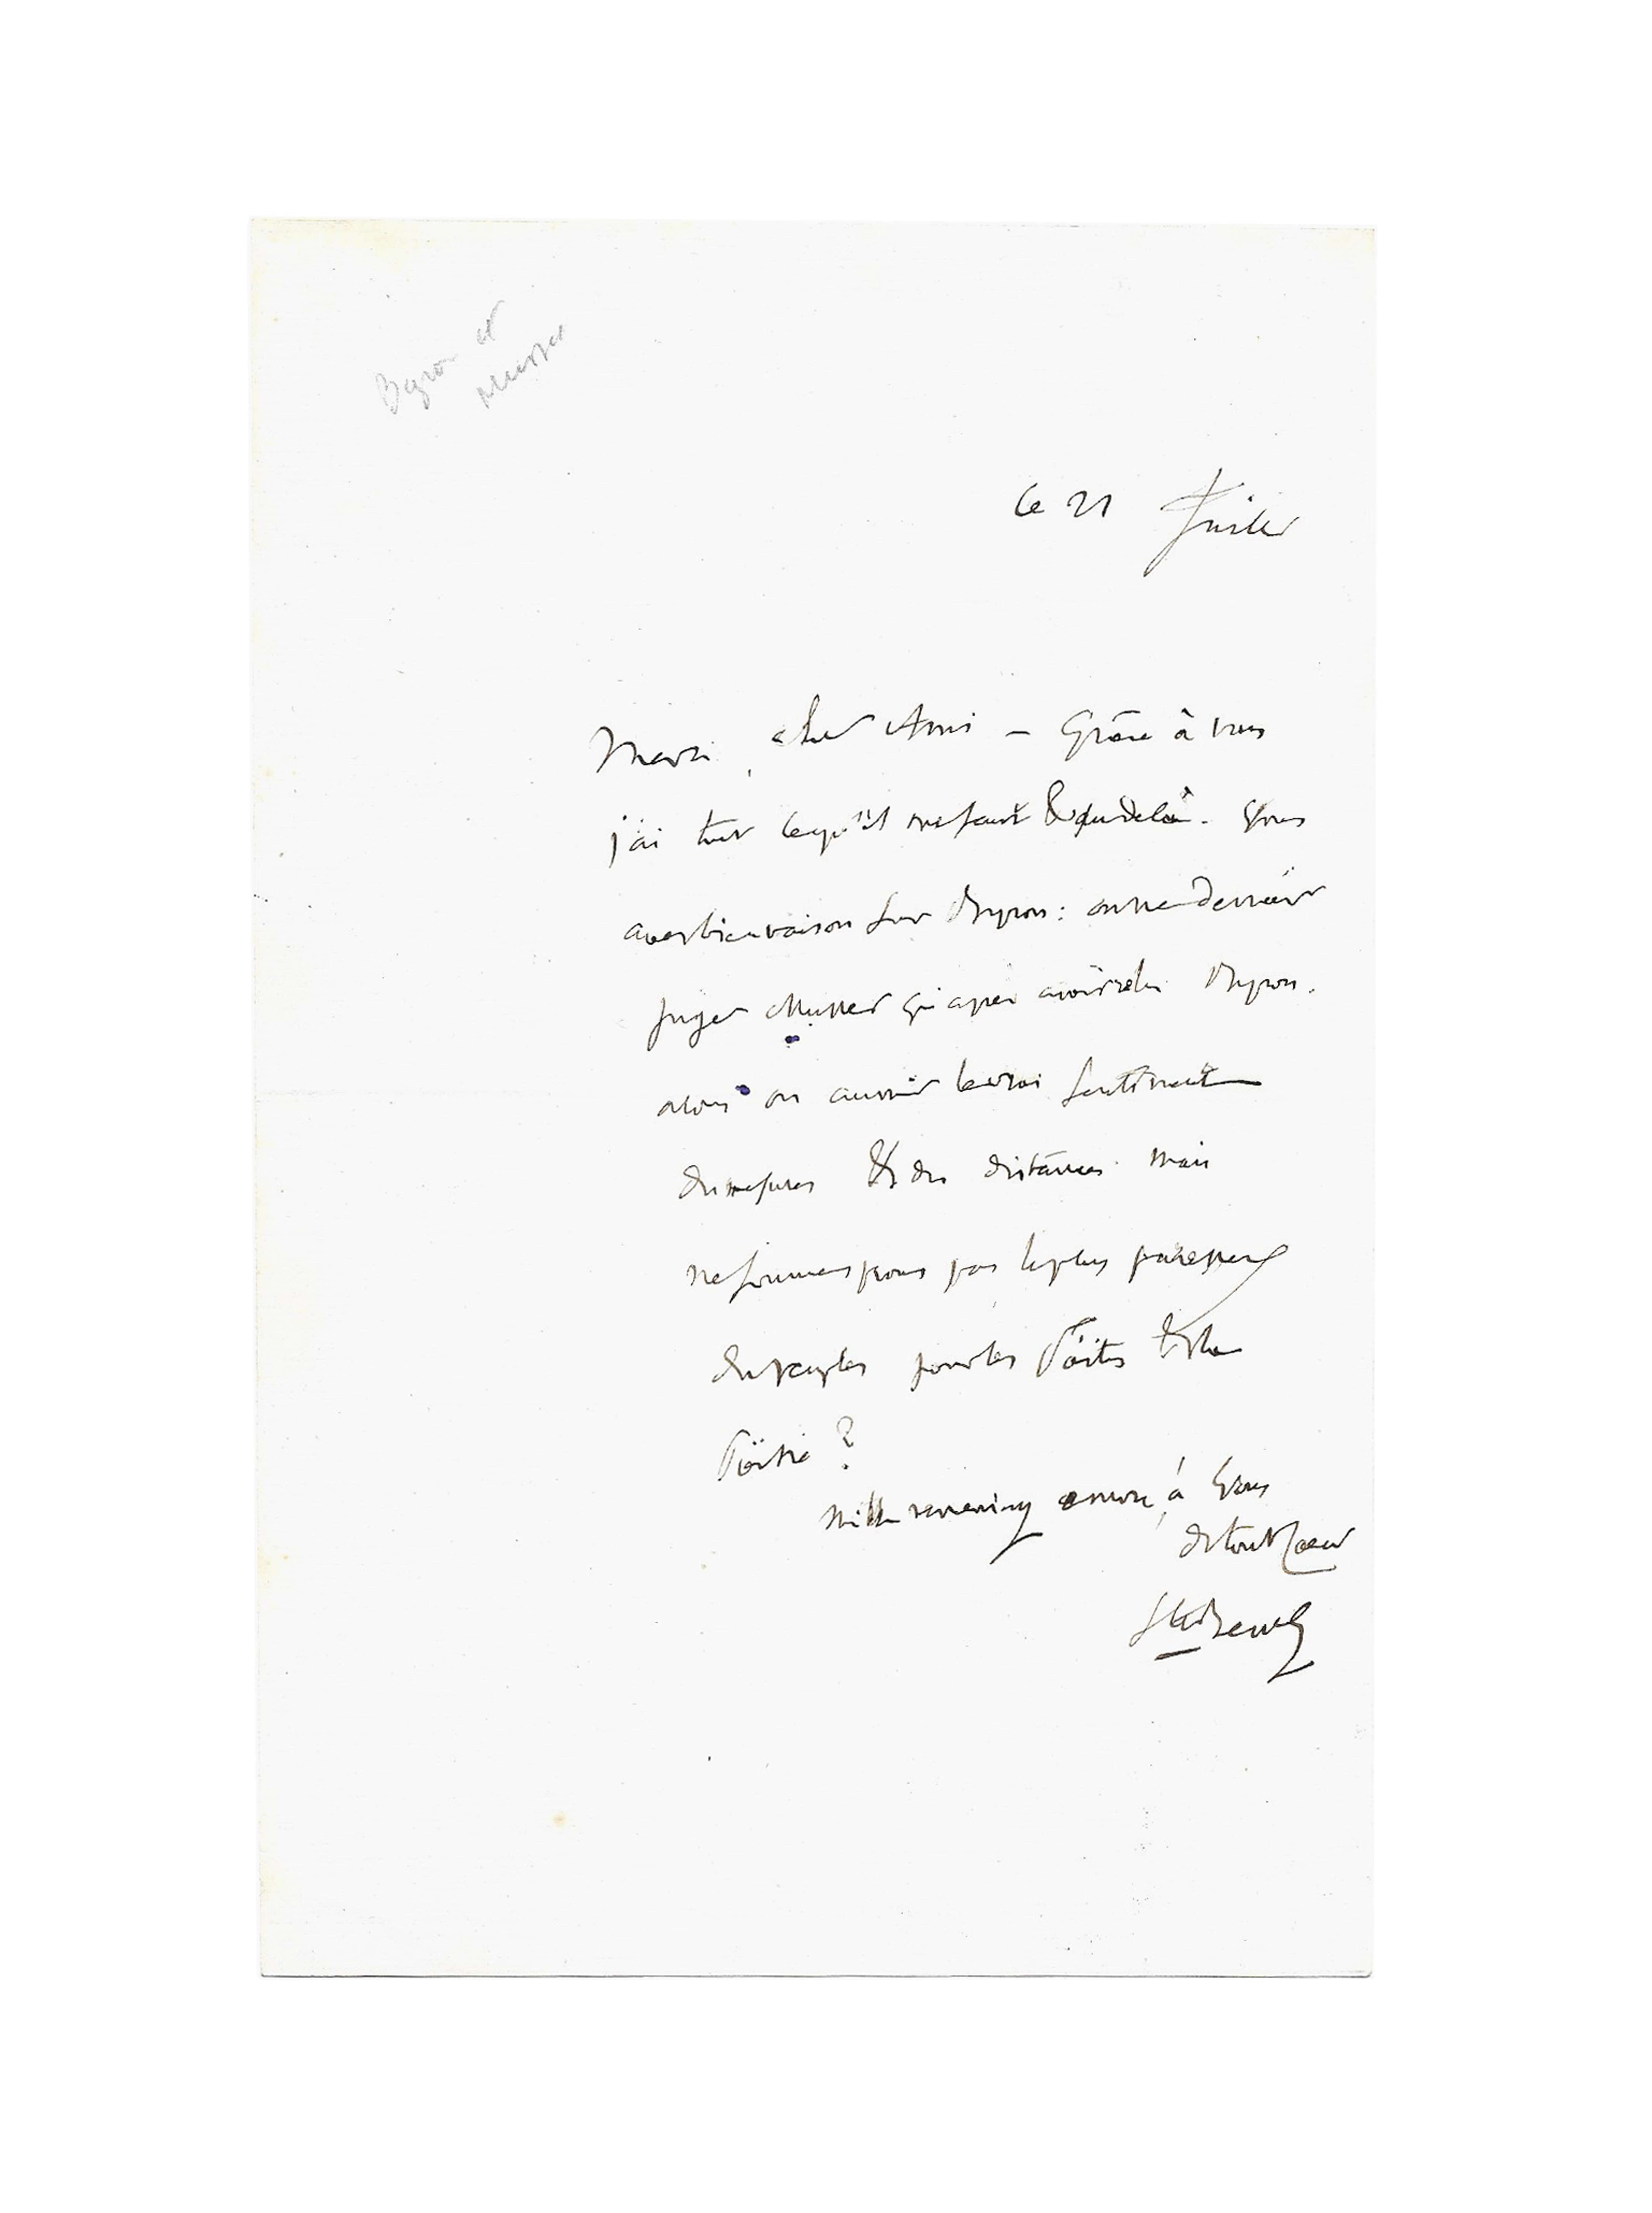 Byron et
Musset
Ce 21 Juillet
Merci, cher Ami – Grâce à vous
j'ai tout ce qu'il me faut & au delà. Vous
avez bien raison sur Byron : on ne devrait
juger Musset qu'après avoir relu Byron.
alors on aurait le vrai sentiment
des mesures & des distances. Mais
ne sommes nous pas le plus paresseux
des peuples pour les Poëtes & la
Poësie ?
Mille remerciemens encore, à Vous
de tout Cœur
Ste Beuve